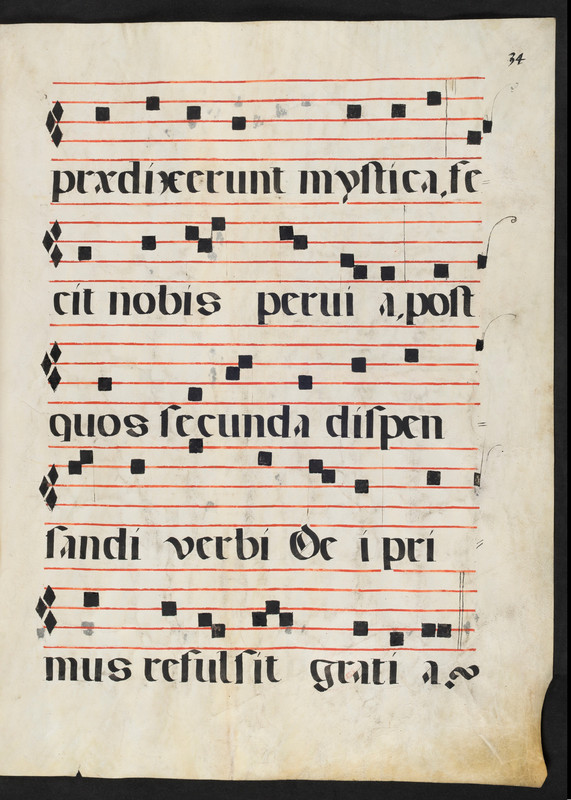 34
prædixerunt mystica, fe=
cit nobis perui a, post
quos secunda dispen =
sandi verbi De i pri =
mus refulsit grati a.